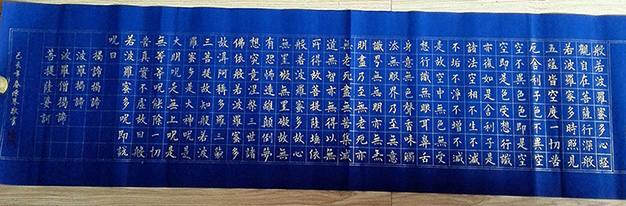 般若波羅蜜多心經
觀自在菩薩行深般
若波羅蜜多時照見
五蘊皆空度一切苦
厄舍利子色不異空
空不異色色即是空
空即是色受想行識
亦復如是舍利子是
諸法空相不生不滅
不垢不淨不增不減
是故空中無色無受
想行識無眼耳鼻舌
身意無色聲香味觸
法無眼界乃至無意
識界無無明亦無無
明盡乃至無老死亦
無老死盡無苦集滅
道無智亦無得以無
所得故菩提薩埵依
般若波羅蜜多故心
無罣礙無罣礙故無
有恐怖遠離顛倒夢
想究竟涅槃三世諸
佛依般若波羅蜜多
故得阿耨多羅三藐
三菩提故知般若波
羅蜜多是大神呪是
大明呪是無上呪是
無等等呪能除一切
苦真實不虛故說般
若波羅蜜多呪即說
呪曰
揭諦揭諦
波羅揭諦
波羅僧揭諦
菩提薩婆訶
己亥年春